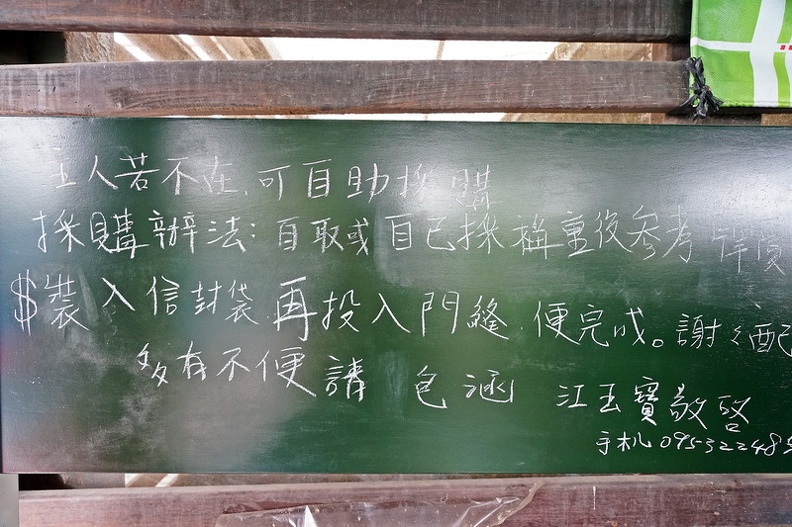 主人若不在,可自助採購
採購辦法:自取或自己採稱重後參考牌價
$裝入信封袋.再投入門縫.便完成。謝々配
多有不便請 包涵 江玉寶敬啓
手机 095322248